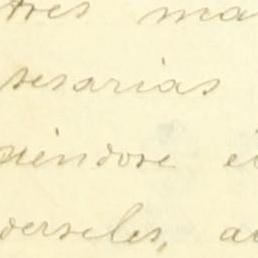 tres ma
sesarias
niendose e
derseles, a